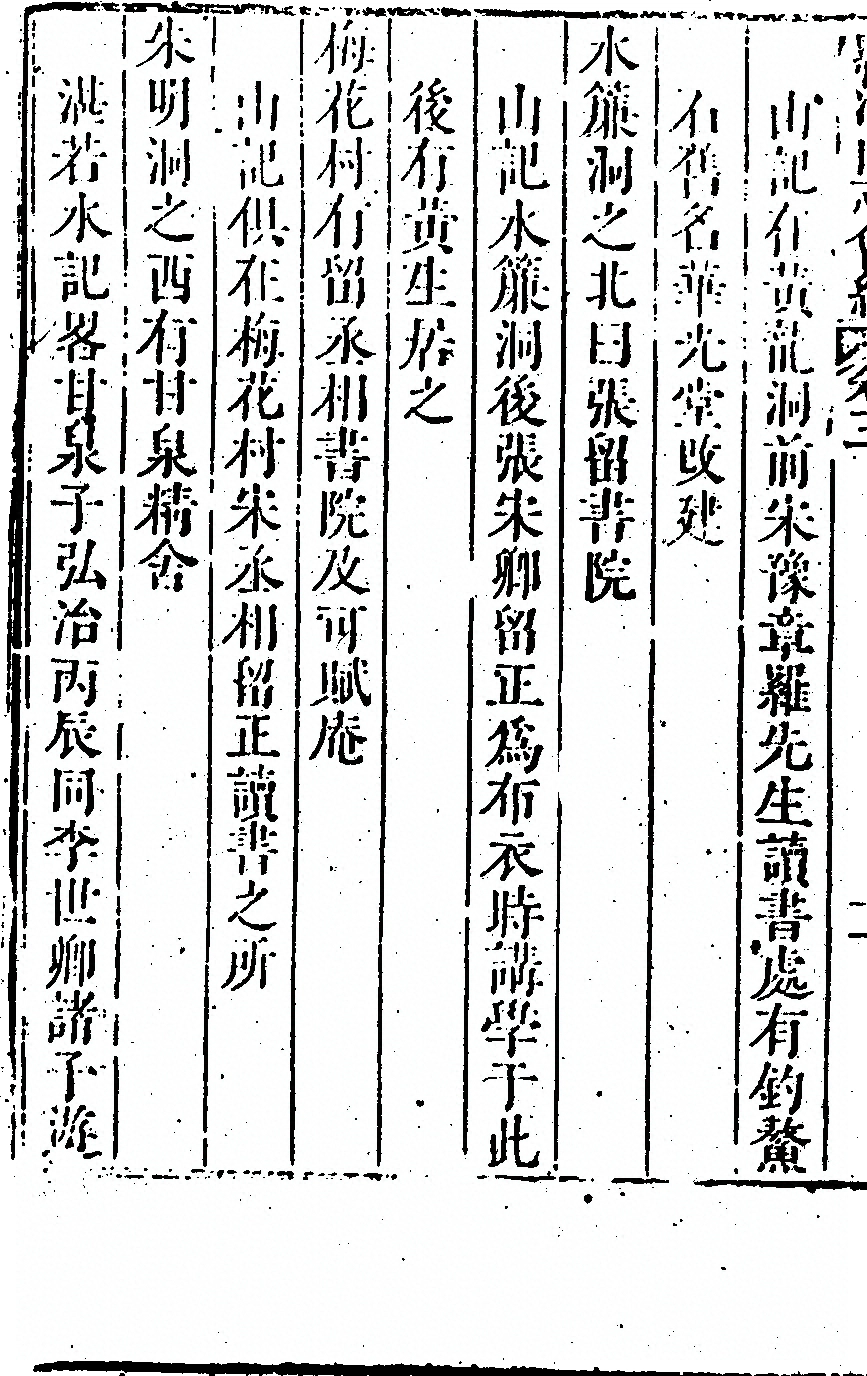 山記在黃龍洞前宋豫章羅先生讀書處有釣鰲
石舊名華光堂改建
水簾洞之北曰張留書院
山記水簾洞後張宋卿留正爲布衣時講學于此
後有黃生居之
梅花村有留丞相書院及可賦庵
山記俱在梅花村宋丞相留正讀書之所
朱明洞之西有甘泉精舍
湛若水記畧甘泉子弘治丙辰同李世卿諸子遊